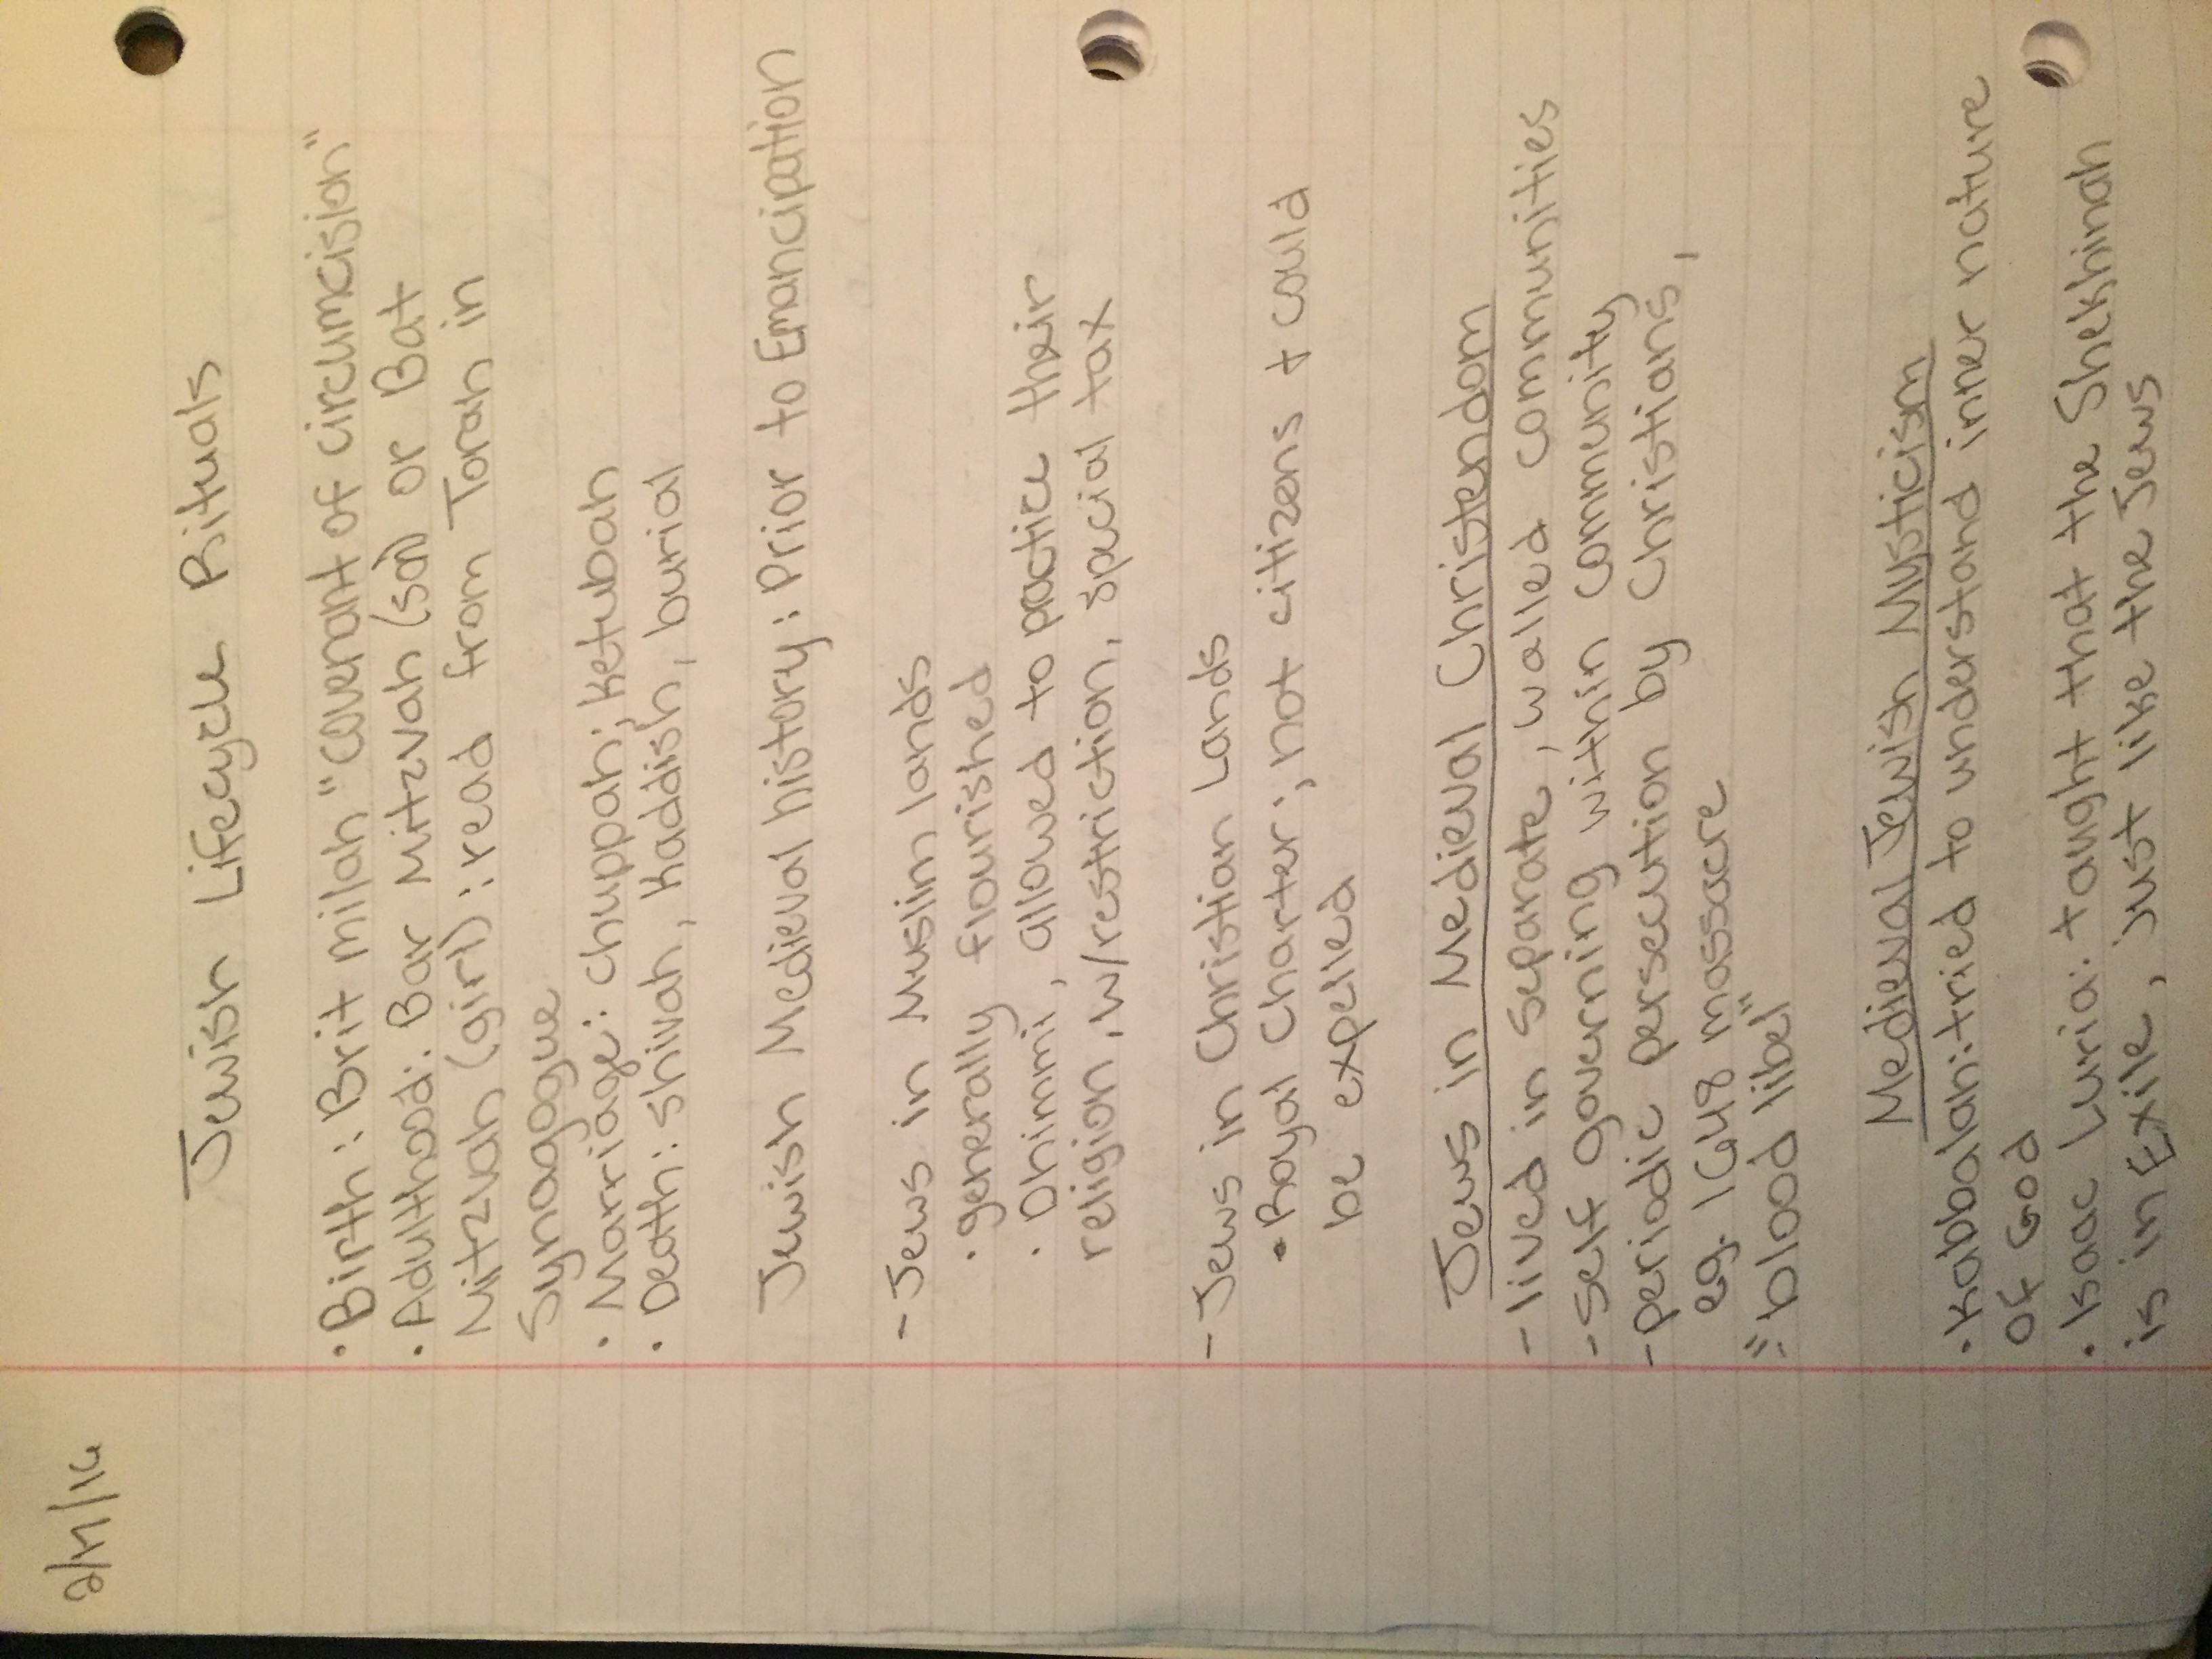 Jewish Lifecycle Rituals
• Birth: Brit milah "covenant of circumcision"
• Adulthood: Bar Mitzvah (son) or Bat
Mitzvah (girl): read from Torah in
Synagogue
• Marriage: chuppah; ketubah
• Death: shivah, Kaddish, burial
Jewish Medieval history: Prior to Emancipation
- Jews in Muslim lands
• generally flourished
• Dhimmi, allowed to practice their
religion, w/restriction, special tax
- Jews in Christian Lands
• Royal Charter; not citizens + could
be expelled
Jews in Medieval Christendom
- lived in separate, walled communities
- self governing within community
- periodic persecution by Christians,
eg. 1648 massacre
"blood libel"
Medieval Jewish Mysticism
• Kabbalah: tried to understand inner nature
of God
• Isaac Luria: taught that the Shekhinah
is in Exile, just like the Jews